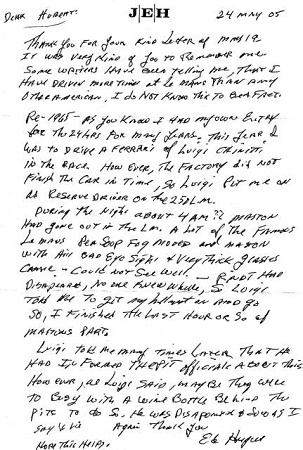 JEH
24 May 05
Dear Hubert:
Thank you for your kind letter of May 19
It was very kind of you to remember me.
Some writers have been telling me, that I
have driven more times at Le Mans than any
other American, I do not know this to be a fact.
Re-1965 - As you know I had my own entry
for the 24 hrs for many years. This year I
was to drive a Ferrari of Luigi Chinetti
in the race. How ever, the factory did not
finish the car in time, so Luigi put me on
as reserve driver on the 250LM.
During the night about 4 AM?? Masten
had gone out in the LM. A lot of the famous
Le Mans pea soup fog moved and Masten
with his bad eye sight & very thick glasses
came - could not see well. Rindt had
disappeared, no one knew where, so Luigi
told me to get my helmet on and go
so, I finished the last hour or so of
Mastens part.
Luigi told me many times later that he
had informed the pit officials about this.
How ever, as Luigi said, maybe they were
to busy with a wine bottle behind the
pits to do so. He was disapointed & so as I
say Again Thank you
Hope this helps. Ed Hugus